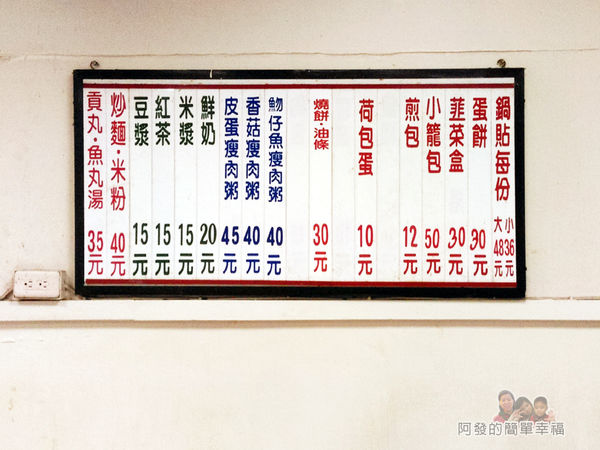 鍋貼每份 大48元 小36元
蛋餅 30元
韮菜盒 30元
小籠包 50元
煎包 12元
荷包蛋 10元
燒餅·油條 30元
魩仔魚瘦肉粥 40元
香菇瘦肉粥 40元
皮蛋瘦肉粥 45元
鮮奶 20元
米漿 15元
紅茶 15元
豆漿 15元
炒麵·米粉 40元
貢丸·魚丸湯 35元
阿發的簡單幸福